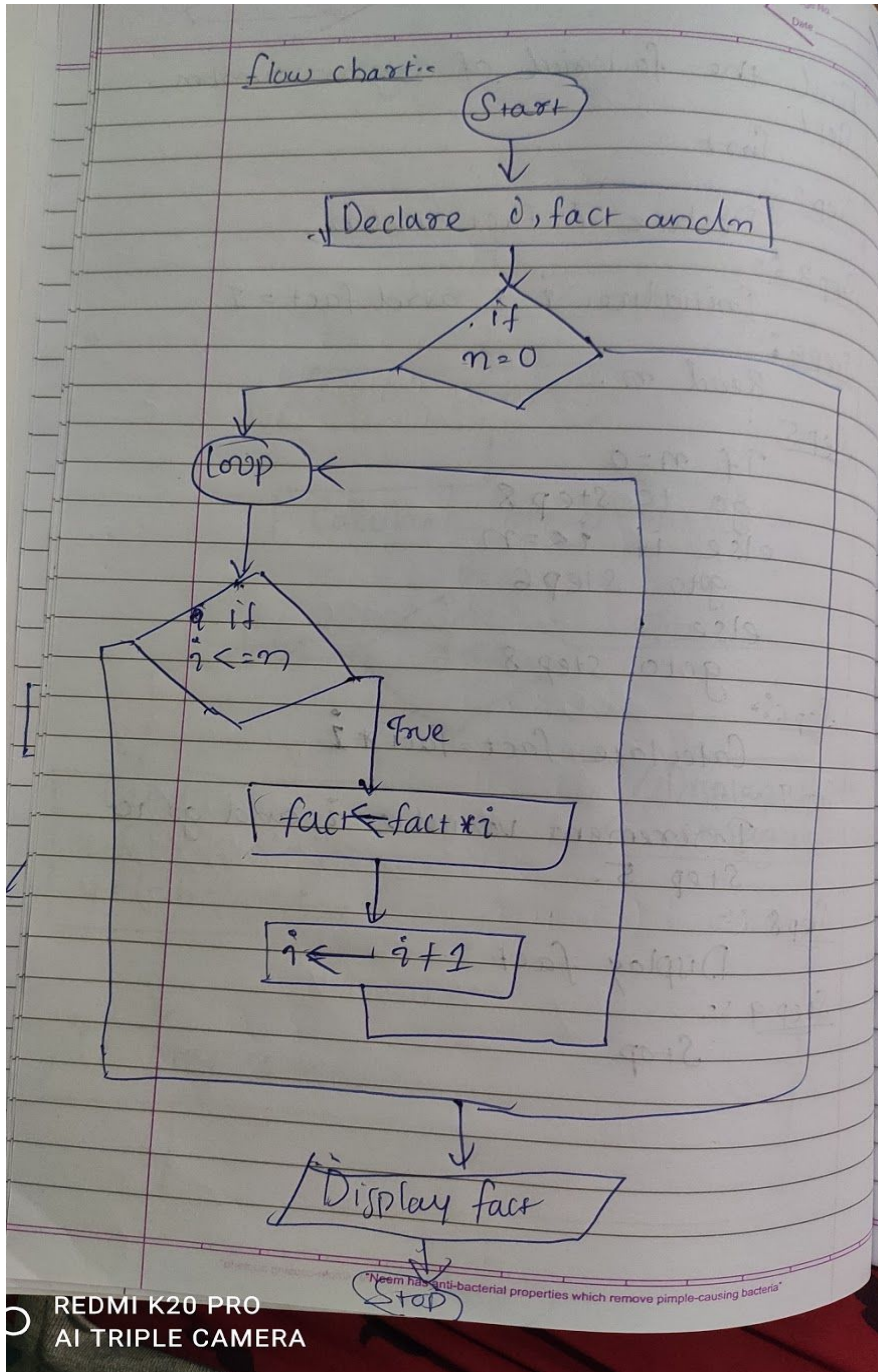 flow chart:-
Start
Declare i, fact and n
if
n=0
loop
if
i <= n
True
fact ← fact * i
i ← i + 1
Display fact
"Neem has anti-bacterial properties which remove pimple-causing bacteria"
Stop
REDMI K20 PRO
AI TRIPLE CAMERA